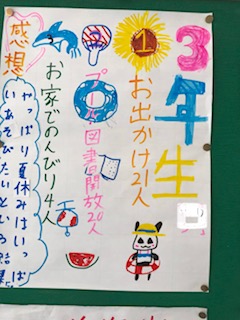 3年生
1 お出かけ21人
2 プール・図書開放20人
お家でのんびり4人
感想
やっぱり夏休みはいっぱ
いあそびたいという結果